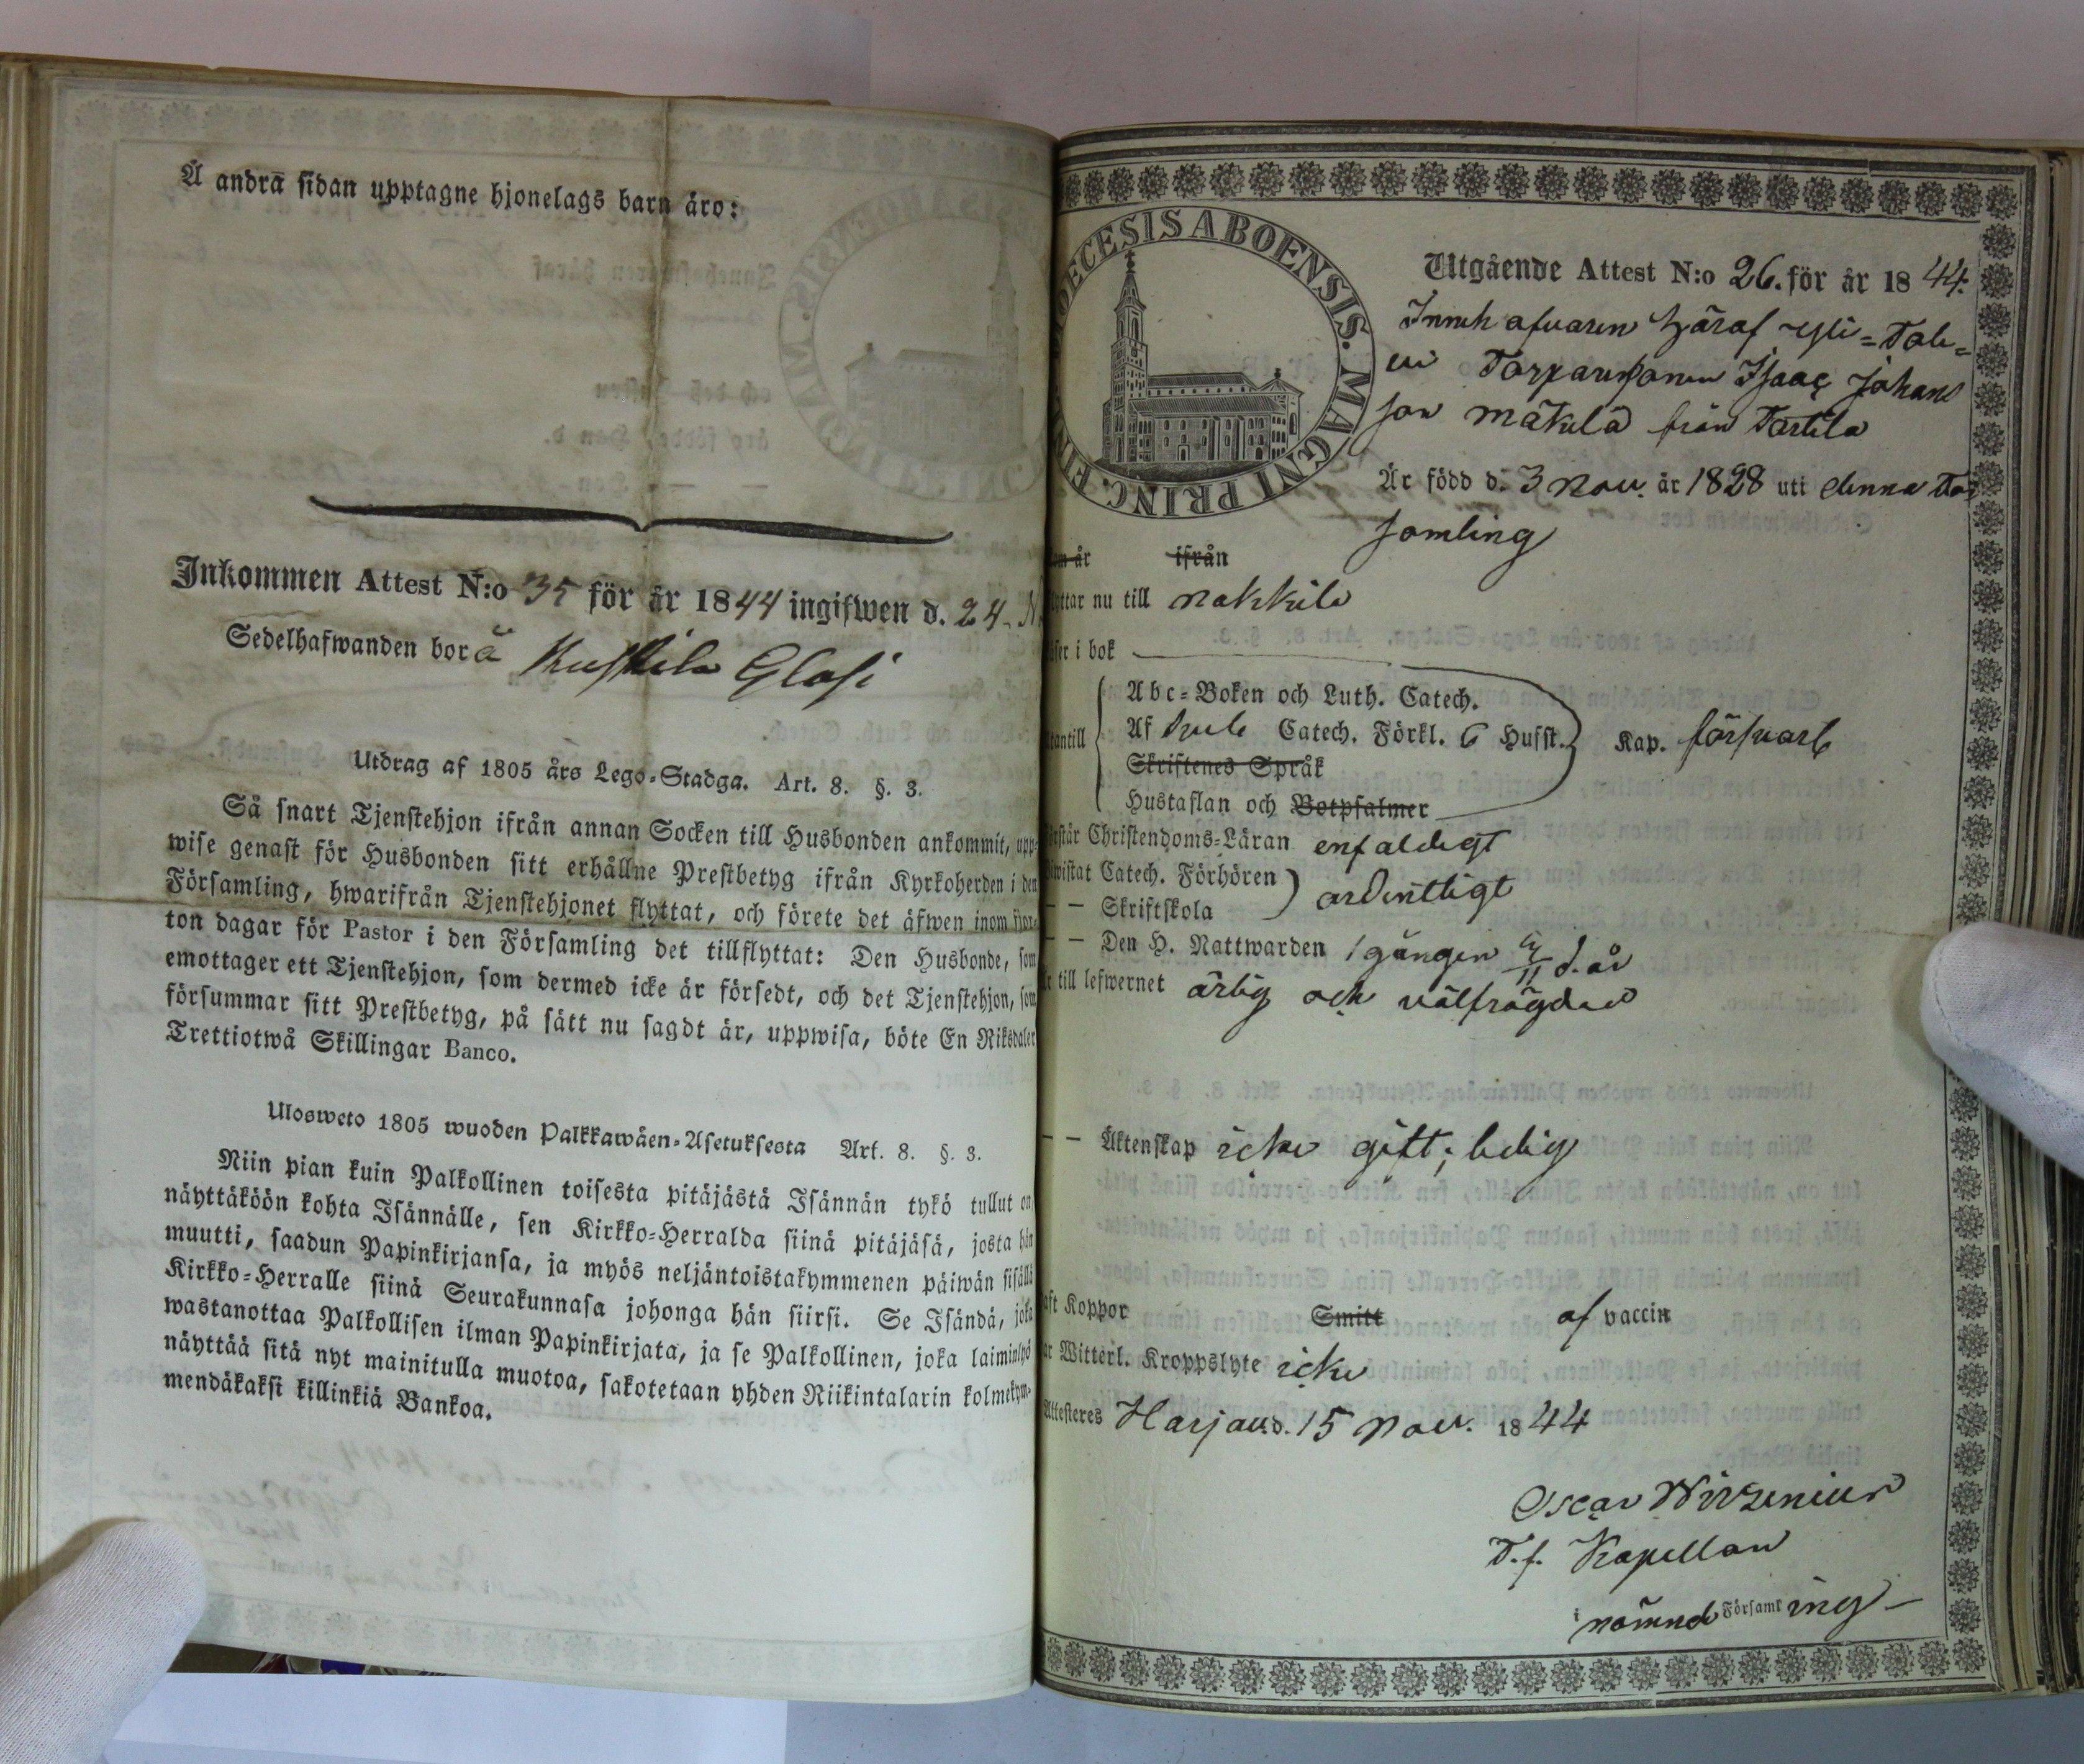 Å andra sidan upptagne hjonelags barn äro:
Inkommen Attest N:o 35 för år 1844 ingifwen d. 24
Sedelhafwanden bor å
Utdrag af 1805 års Lego-Stadga. Art. 8. §. 3.
Så snart Tjenstehjon ifrån annan Socken till Husbonden ankommit, upp-
wise genast för Husbonden sitt erhållne Prestbetyg ifrån Kyrkoherden i den
Församling, hwarifrån Tjenstehjonet flyttat, och förete det äfwen inom fjor-
ton dagar för Pastor i den Församling det tillflyttat: Den Husbonde, som
emottager ett Tjenstehjon, som dermed icke är försedt, och det Tjenstehjon, som
försummar sitt Prestbetyg, på sätt nu sagdt är, uppwisa, böte En Riksdaler
Trettiotwå Skillingar Banco.
Ulosweto 1805 wuoden Palkkawäen-Asetuksesta Art. 8. §. 3.
Niin pian kuin Palkollinen toisesta pitäjästä Isännän tykö tullut on
näyttäköön kohta Isännälle, sen Kirkko-Herralda siinä pitäjäsä, josta hän
muutti, saadun Papinkirjansa, ja myös neljäntoistakymmenen päiwän sisällä
Kirkko-Herralle siinä Seurakunnasa johonga hän siirsi. Se Isändä, joka
wastanottaa Palkollisen ilman Papinkirjata, ja se Palkollinen, joka laiminlyö
näyttää sitä nyt mainitulla muotoa, sakotetaan yhden Riikintalarin kolmekym-
mendäkaksi killinkiä Bankoa.
DIOECESIS ABOENSIS. MAGNI PRINC. FINL.
Utgående Attest N:o 26. för år 1844.
Innehafvaren häraf Yli-
Torparesonen Isaac Johans
son Mäkilä från Tattila
Är född d. 3 Nov. år 1828 uti denna För
samling
om år ifrån
yttar nu till Nakkila
äser i bok
tantill
Abc-Boken och Luth. Catech.
Af hela Catech. Förkl. 6 Hufst. Kap. försvarl
Skriftenes Språk
Hustaflan och Botpsalmer
örstår Christendoms-Läran enfaldigt
iwistat Catech. Förhören
— — Skriftskola ordentligt
— — Den H. Nattwarden 1 gången d. år
r till lefwernet ärlig och välfrägdad
— — Äktenskap icke gift; ledig
aft Koppor Smitt af vaccin
ar Witterl. Kroppslyte icke
Attesteres Harjav. d. 15 Nov. 1844
Oscar Wirzenius
T.f. Kapellan
i nämnd Församling